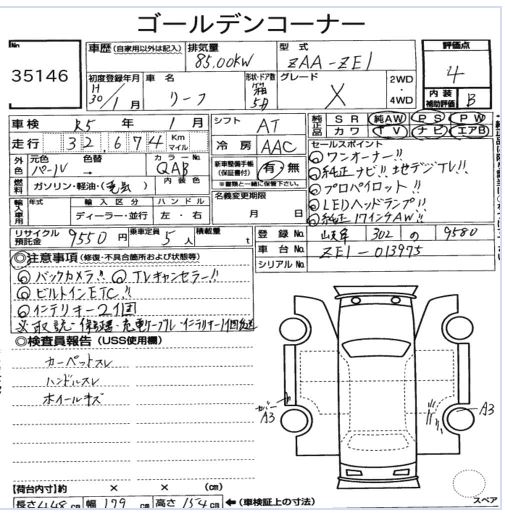 ゴールデンコーナー
No.
35146
車歴 (自家用以外は記入)
排気量
85.00KW
型式
ZAA-ZE1
評価点
4
内装
補助評価
B
初度登録年月
H
30 / 1 月
車名
リーフ
形状・ドア数
5D
グレード
X
2WD
・
4WD
車検 R5 年 1 月
シフト AT
純正品
SR 純AW PS PW
カワ TV ナビ エアB
走行 32,674 Km
マイル
冷房 AAC
セールスポイント
ワンオーナー!!
純正ナビ!! 地デジTV!!
プロパイロット!!
LEDヘッドランプ!!
純正17インチAW!!
外色
元色 色替 カラーNo.
パール → QAB
新車整備手帳
(保証書付)
有・無
※書類と一緒に保管下さい。
燃料
ガソリン・軽油・(電気)
内装色
名義変更期限
月 日
輸入車用
年式 輸入区分 ハンドル
ディーラー・並行 左・右
リサイクル
預託金
9550 円
乗車定員
5 人
積載量
t
登録No. 302 の 9580
車台No. ZE1-013975
シリアルNo.
◎注意事項 (修復・不具合箇所および状態等)
バックカメラ!! TVキャンセラー!!
ビルトインETC!!
インテリキー2個
取説・保証書・充電ケーブル・インテリキー1個後送
◎検査員報告 (USS使用欄)
カーペットスレ
ハンドルスレ
ホイールキズ
A3
A3
スペア
【荷台内寸】約 × × (cm)
長さ 448 cm 幅 179 cm 高さ 154 cm ←(車検証上の寸法)